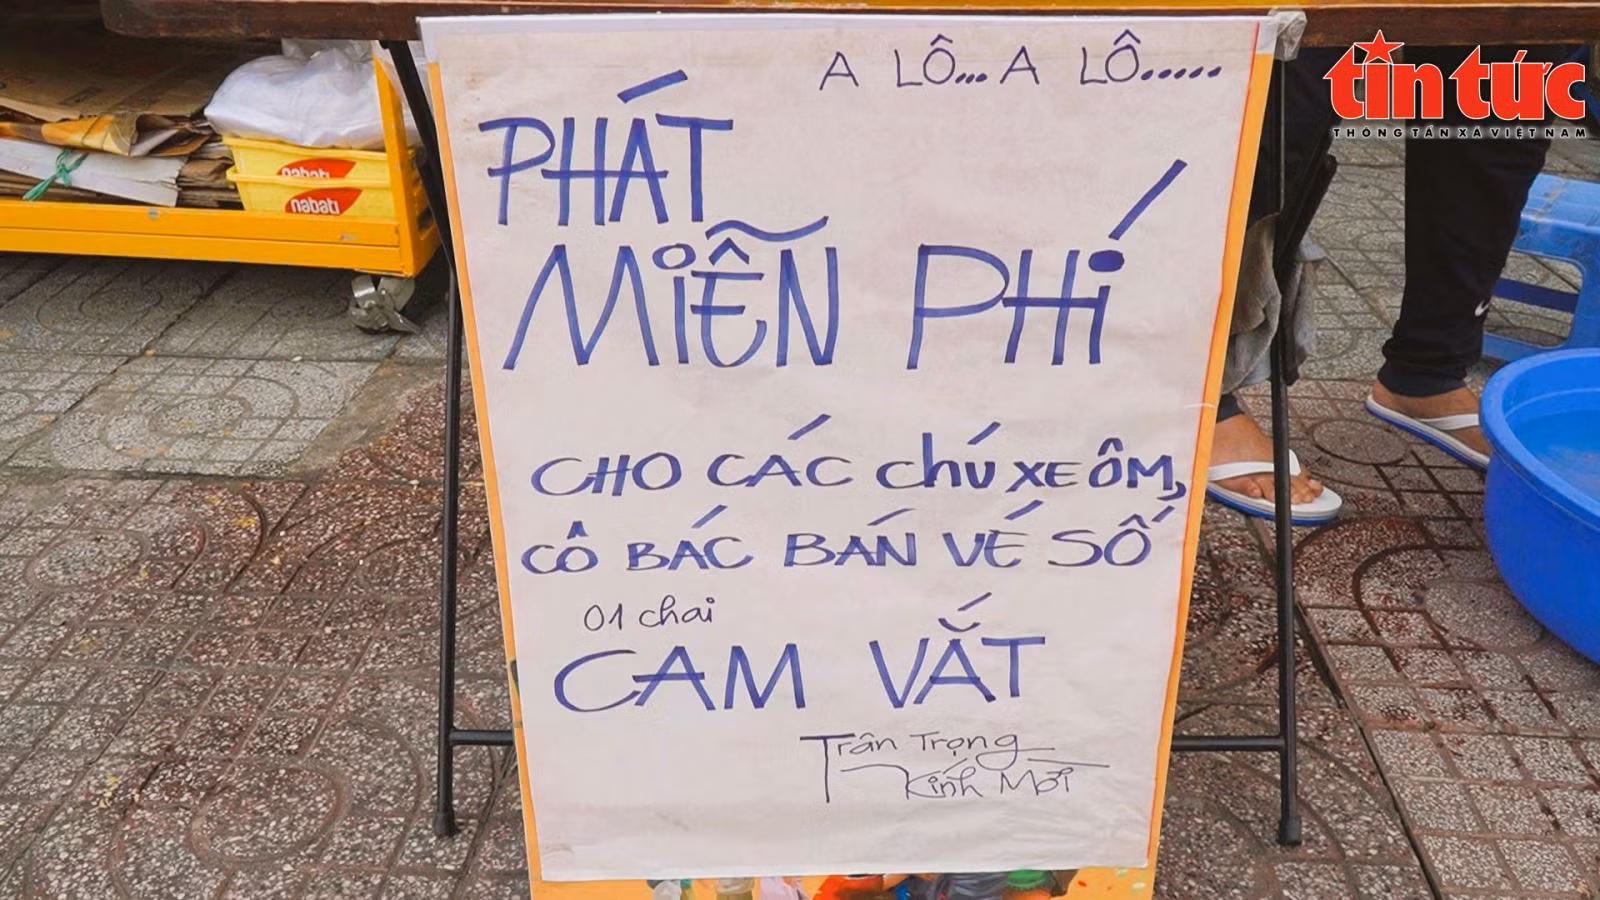 A LÔ...A LÔ.....
PHÁT
MIỄN PHÍ
CHO CÁC CHÚ XE ÔM,
CÔ BÁC BÁN VÉ SỐ
01 chai
CAM VẮT
Trân Trọng
Kính Mời
tin tức
THÔNG TẤN XÃ VIỆT NAM
nabati
nabati